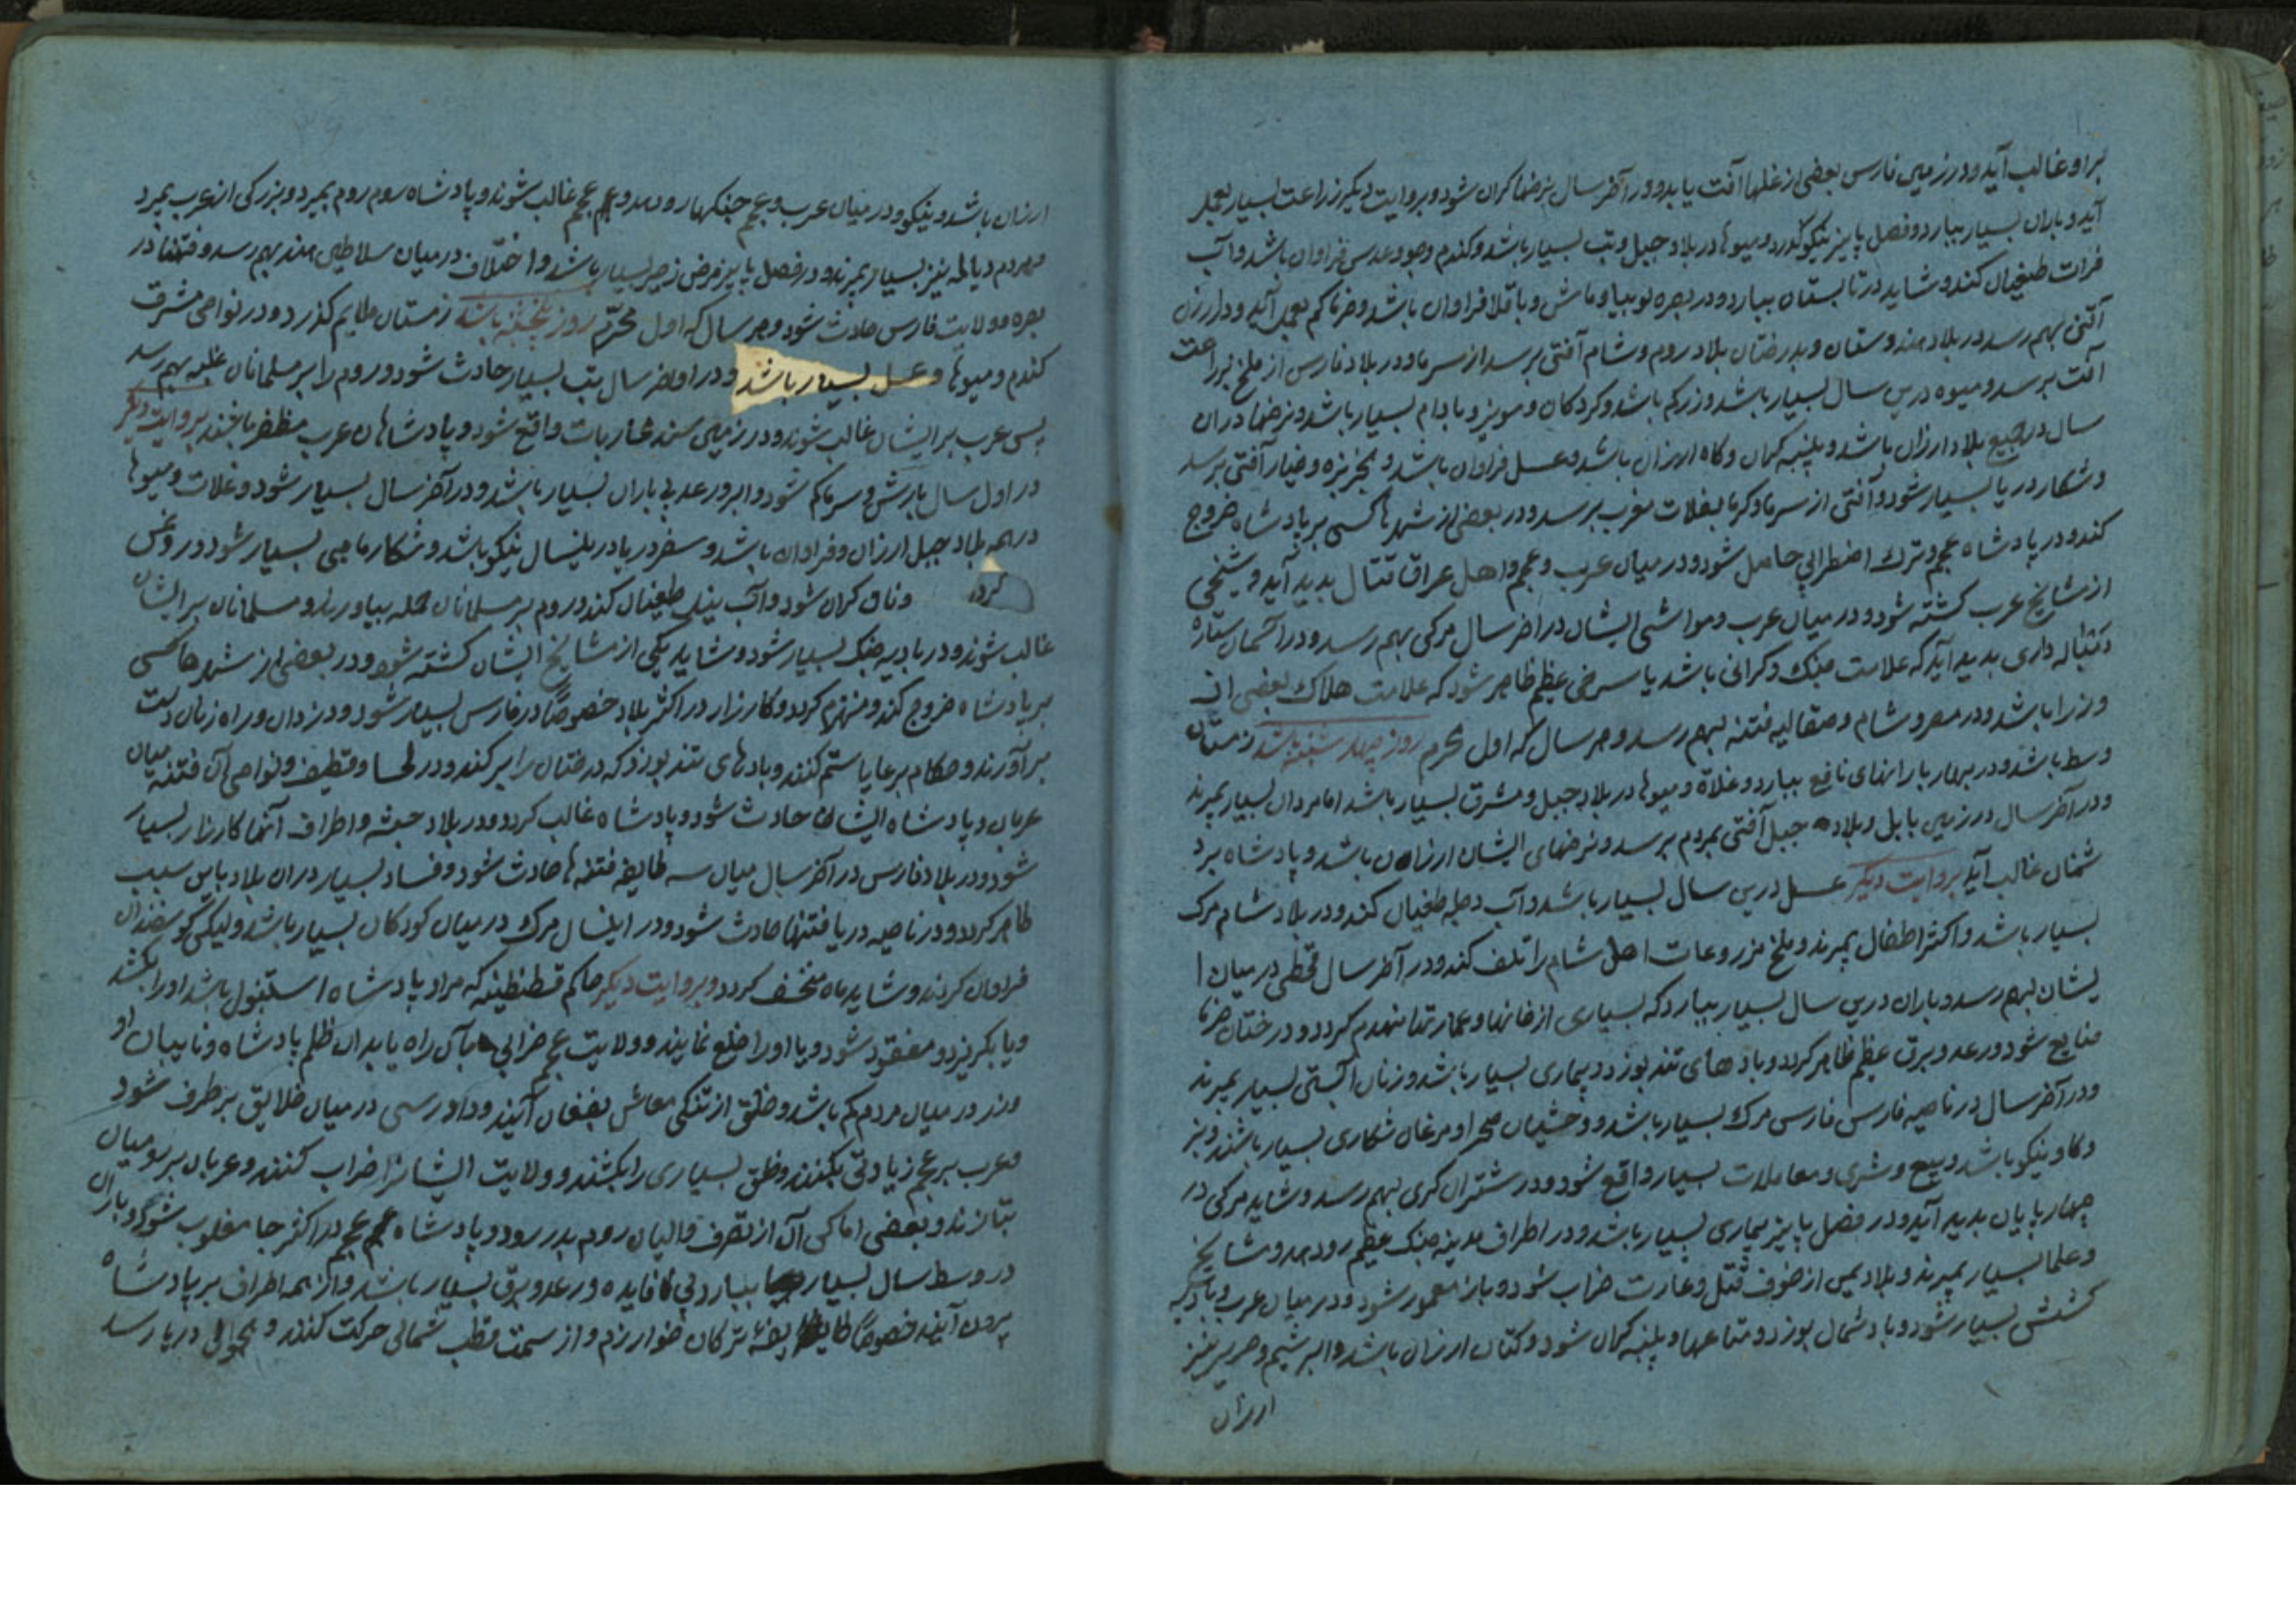 براو غالب آید و در زمین فارس بعضی از غلها آفت یابد و در آخر سال نرخها کران شود و بروایت دیکر زراعت بسیار بعمل
آید و باران بسیار ببارد و فصل پاییز نیکو گذرد و میوها در بلاد جبل و تب بسیار باشد و کندم و جو و عدس فراوان باشد و آب
فرات طغیان کند و شاید در تابستان ببارد و در بصره لوبیا و ماش و باقلا فراوان باشد و خرما کم بعمل آید و در ارزن
آفتی بهم رسد در بلاد هندوستان و بدرختان بلاد روم و شام آفتی برسد از سرما و در بلاد فارس از ملخ بزراعت
آفت برسد و میوه درین سال بسیار باشد و زر کم باشد و کردکان و مویز و بادام بسیار باشد و نرخها در ان
سال در جمیع بلاد ارزان باشد و پنبه کران و کاه ارزان باشد و عسل فراوان باشد و بخربزه و خیار آفتی برسد
و شکار دریا بسیار شود و آفتی از سرما و کرما بغلات مغرب برسد و در بعضی از شهرها کسی بر پادشاه خروج
کند و در پادشاه عجم و ترک اضطرابی حاصل شود و در میان عرب و عجم و اهل عراق قتال بدید آید و شیخی
از مشایخ عرب کشته شود و در میان عرب و مواشی ایشان در اخر سال مرکی بهم رسد و در آسمان ستاره
دنباله داری بدید آید که علامت جنک و کرانی باشد یا سرخی عظیم ظاهر شود که علامت هلاک بعضی از
وزرا باشد و در مصر و شام و صقالیه فتنه بهم رسد و هر سال که اول محرم روز چهار شنبه باشد زمستان
وسط باشد و در بهار بارانهای نافع ببارد و غلاة و میوها در بلاد جبل و مشرق بسیار باشد اما مردان بسیار بمیرند
و در آخر سال در زمین بابل و بلاد جبل آفتی بمردم برسد و نرخهای ایشان ارزان باشد و پادشاه بر د
شمنان غالب آید بروایت دیکر عسل درین سال بسیار باشد و آب دجله طغیان کند و در بلاد شام مرک
بسیار باشد و اکثر اطفال بمیرند و ملخ مزروعات اهل شام را تلف کند و در آخر سال قحطی در میان ا
یشان بهم رسد و باران درین سال بسیار ببارد که بسیاری از خانها و عمارتها منهدم کردد و درختان خرما
ضایع شود و رعد و برق عظیم ظاهر کردد و بادهای تند بوزد و بیماری بسیار باشد و زنان آبستن بسیار بمیرند
و در آخر سال در ناحیه فارس فارس مرک بسیار باشد و وحشیان صحرا و مرغان شکاری بسیار باشند و بز
و کاو نیکو باشد و بیع و شری و معاملات بسیار واقع شود و در شتران کری بهم رسد و شاید مرکی در
چهار پایان بدید آید و در فصل پاییز بیماری بسیار باشد و در اطراف مدینه جنک عظیم رو دهد و مشایخ
و علما بسیار بمیرند و بلاد یمن از خوف قتل و غارت خراب شود و باز معمور شود و در میان عرب
کشتش بسیار شود و باد شمال بوزد و متاعها و پنبه کران شود و کتان ارزان باشد و ابریشم و حریر نیز
ارزان
ارزان باشد و نیکو و در میان عرب و عجم جنکها رو دهد و عجم غالب شوند و پادشاه روم روم بمیرد و بزرکی از عرب بمیرد
و مردم دیالمه نیز بسیار بمیرند و در فصل پاییز مرض زحیر بسیار باشد و اختلاف در میان سلاطین هند بهم رسد و فتنها در
بصره و ولایت فارس حادث شود و هر سال که اول محرّم روز پنجشنبه باشد زمستان ملایم کذرد و در نواحی مشرق
کندم و میوها و عسل بسیار باشد و در اواخر سال تب بسیار حادث شود و روم را بر مسلمانان غلبه بهم رسد
پس عرب بر ایشان غالب شوند و در زمین سند محاربات واقع شود و پادشاهان عرب مظفر باشند بروایت دیکر
در اول سال بارش و سرما کم شود و ابر و رعد بی باران بسیار باشد و در آخر سال بسیار شود و غلات و میوها
در همه بلاد جبل ارزان و فراوان باشد و سفر دریا در ینسال نیکو باشد و شکار ماهی بسیار شود و روغن
کران شود و آب نیل طغیان کند و روم بر مسلمانان حمله بیاورند و مسلمانان بر ایشان
غالب شوند و در بادیه جنک بسیار شود و شاید یکی از مشایخ ایشان کشته شود و در بعضی از شهرها کسی
بر پادشاه خروج کند و منهزم کردد و کارزار در اکثر بلاد خصوصًا در فارس بسیار شود و دزدان و راه زنان دست
بر آورند و حکام بر رعایا ستم کنند و بادهای تند بوزد که درختان را بر کند و در لحسا و قطیف و نواحی آن فتنه میان
عربان و پادشاه ایشان حادث شود و پادشاه غالب کردد و در بلاد حبشه و اطراف آنها کارزار بسیار
شود و در بلاد فارس در آخر سال میان سه طایفه فتنه ها حادث شود و فساد بسیار در ان بلاد باین سبب
ظاهر کردد و در ناحیه دریا فتنها حادث شود و در اینسال مرک در میان کودکان بسیار باشد ولیکن کوسفندان
فراوان کردند و شاید ماه منخسف کردد و بروایت دیکر حاکم قسطنطنیه که مراد پادشاه استنبول باشد او را بکشند
و یا بکریزد و مفقود شود و یا او را خلع نمایند و ولایت عجم خرابی بآن راه یابد از ظلم پادشاه و نایبان او
و زر در میان مردم کم باشد و خلق از تنکی معاش بفغان آیند و داد رسی در میان خلایق بر طرف شود
و عرب بر عجم زیادتی بکنند و خلق بسیاری را بکشند و ولایت ایشانرا خراب کنند و عربان بر رومیان
بتازند و بعضی اماکن آن از تصرف والیان روم بدر رود و پادشاه عجم در اکثر جا مغلوب شود و باران
در وسط سال بسیار ببارد بی فایده و رعد و برق بسیار باشد و از همه اطراف بر پادشاه
بیرون آیند خصوصًا طایفهٔ ترکان خوارزم و از سمت قطب شمالی حرکت کنند و بحوالی دریا رسد